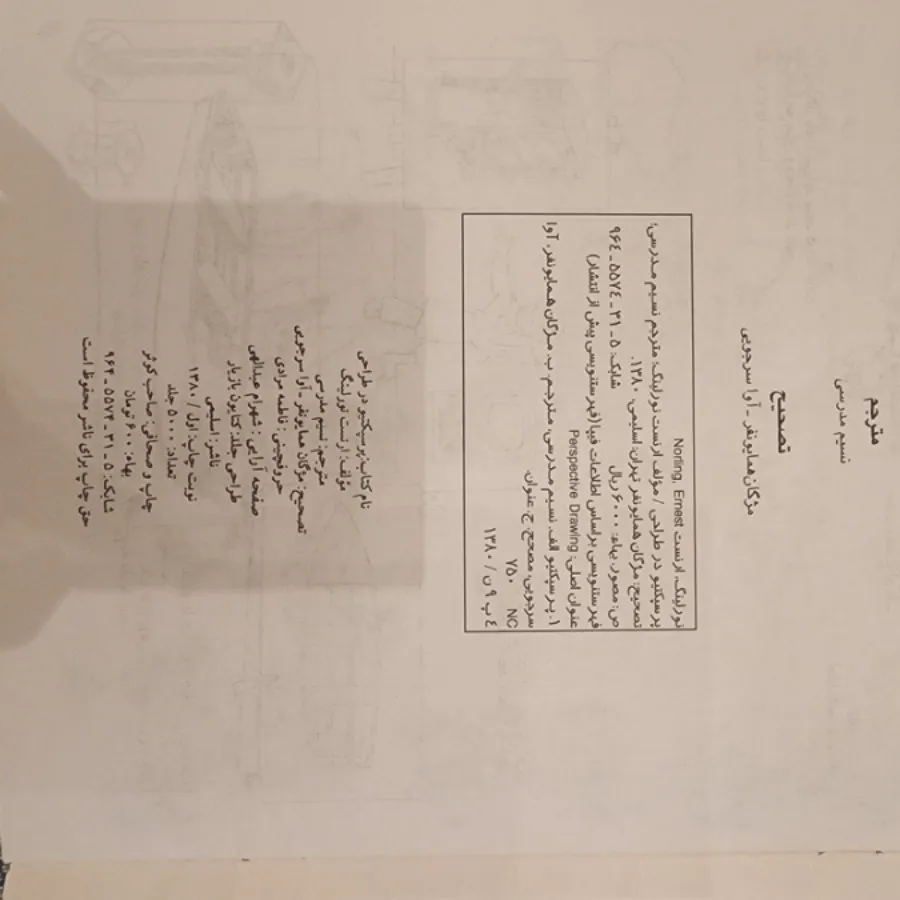 مترجم
نسیم مدرسی
تصحیح
مژگان همایونفر - آوا سرجویی
نورلینگ، ارنست Norling, Ernest
پرسپکتیو در طراحی / مؤلف ارنست نورلینگ؛ مترجم نسیم مدرسی؛
تصحیح: مژگان همایونفر. تهران: اسلیمی، ۱۳۸۰.
ص: مصور. بهاء: ۶۰۰۰ ریال شابک: ۵ ـ ۳۱ ـ ۵۵۷٤ ـ ۹۶٤
فهرستنویسی براساس اطلاعات فیپا (فهرستنویسی پیش از انتشار)
عنوان اصلی: Perspective Drawing
۱. پرسپکتیو الف. نسیم مدرسی، مترجم. ب. مژگان همایونفر، آوا
سرجویی، مصحح. ج. عنوان.
۷۵۰ NC
٤ پ ۹ ن / ۱۳۸۰
نام کتاب: پرسپکتیو در طراحی
مؤلف: ارنست نورلینگ
مترجم: نسیم مدرسی
تصحیح: مژگان همایونفر - آوا سرجویی
حروفچینی: فاطمه مرادی
صفحه آرایی: شهرام عبدالهی
طراحی جلد: کتایون بازیار
ناشر: اسلیمی
نوبت چاپ: اول / ۱۳۸۰
تعداد: ۵۰۰۰ جلد
چاپ و صحافی: صاحب کوثر
بهاء: ۶۰۰ تومان
شابک: ۵ ـ ۳۱ ـ ۵۵۷۴ ـ ۹۶۴
حق چاپ برای ناشر محفوظ است